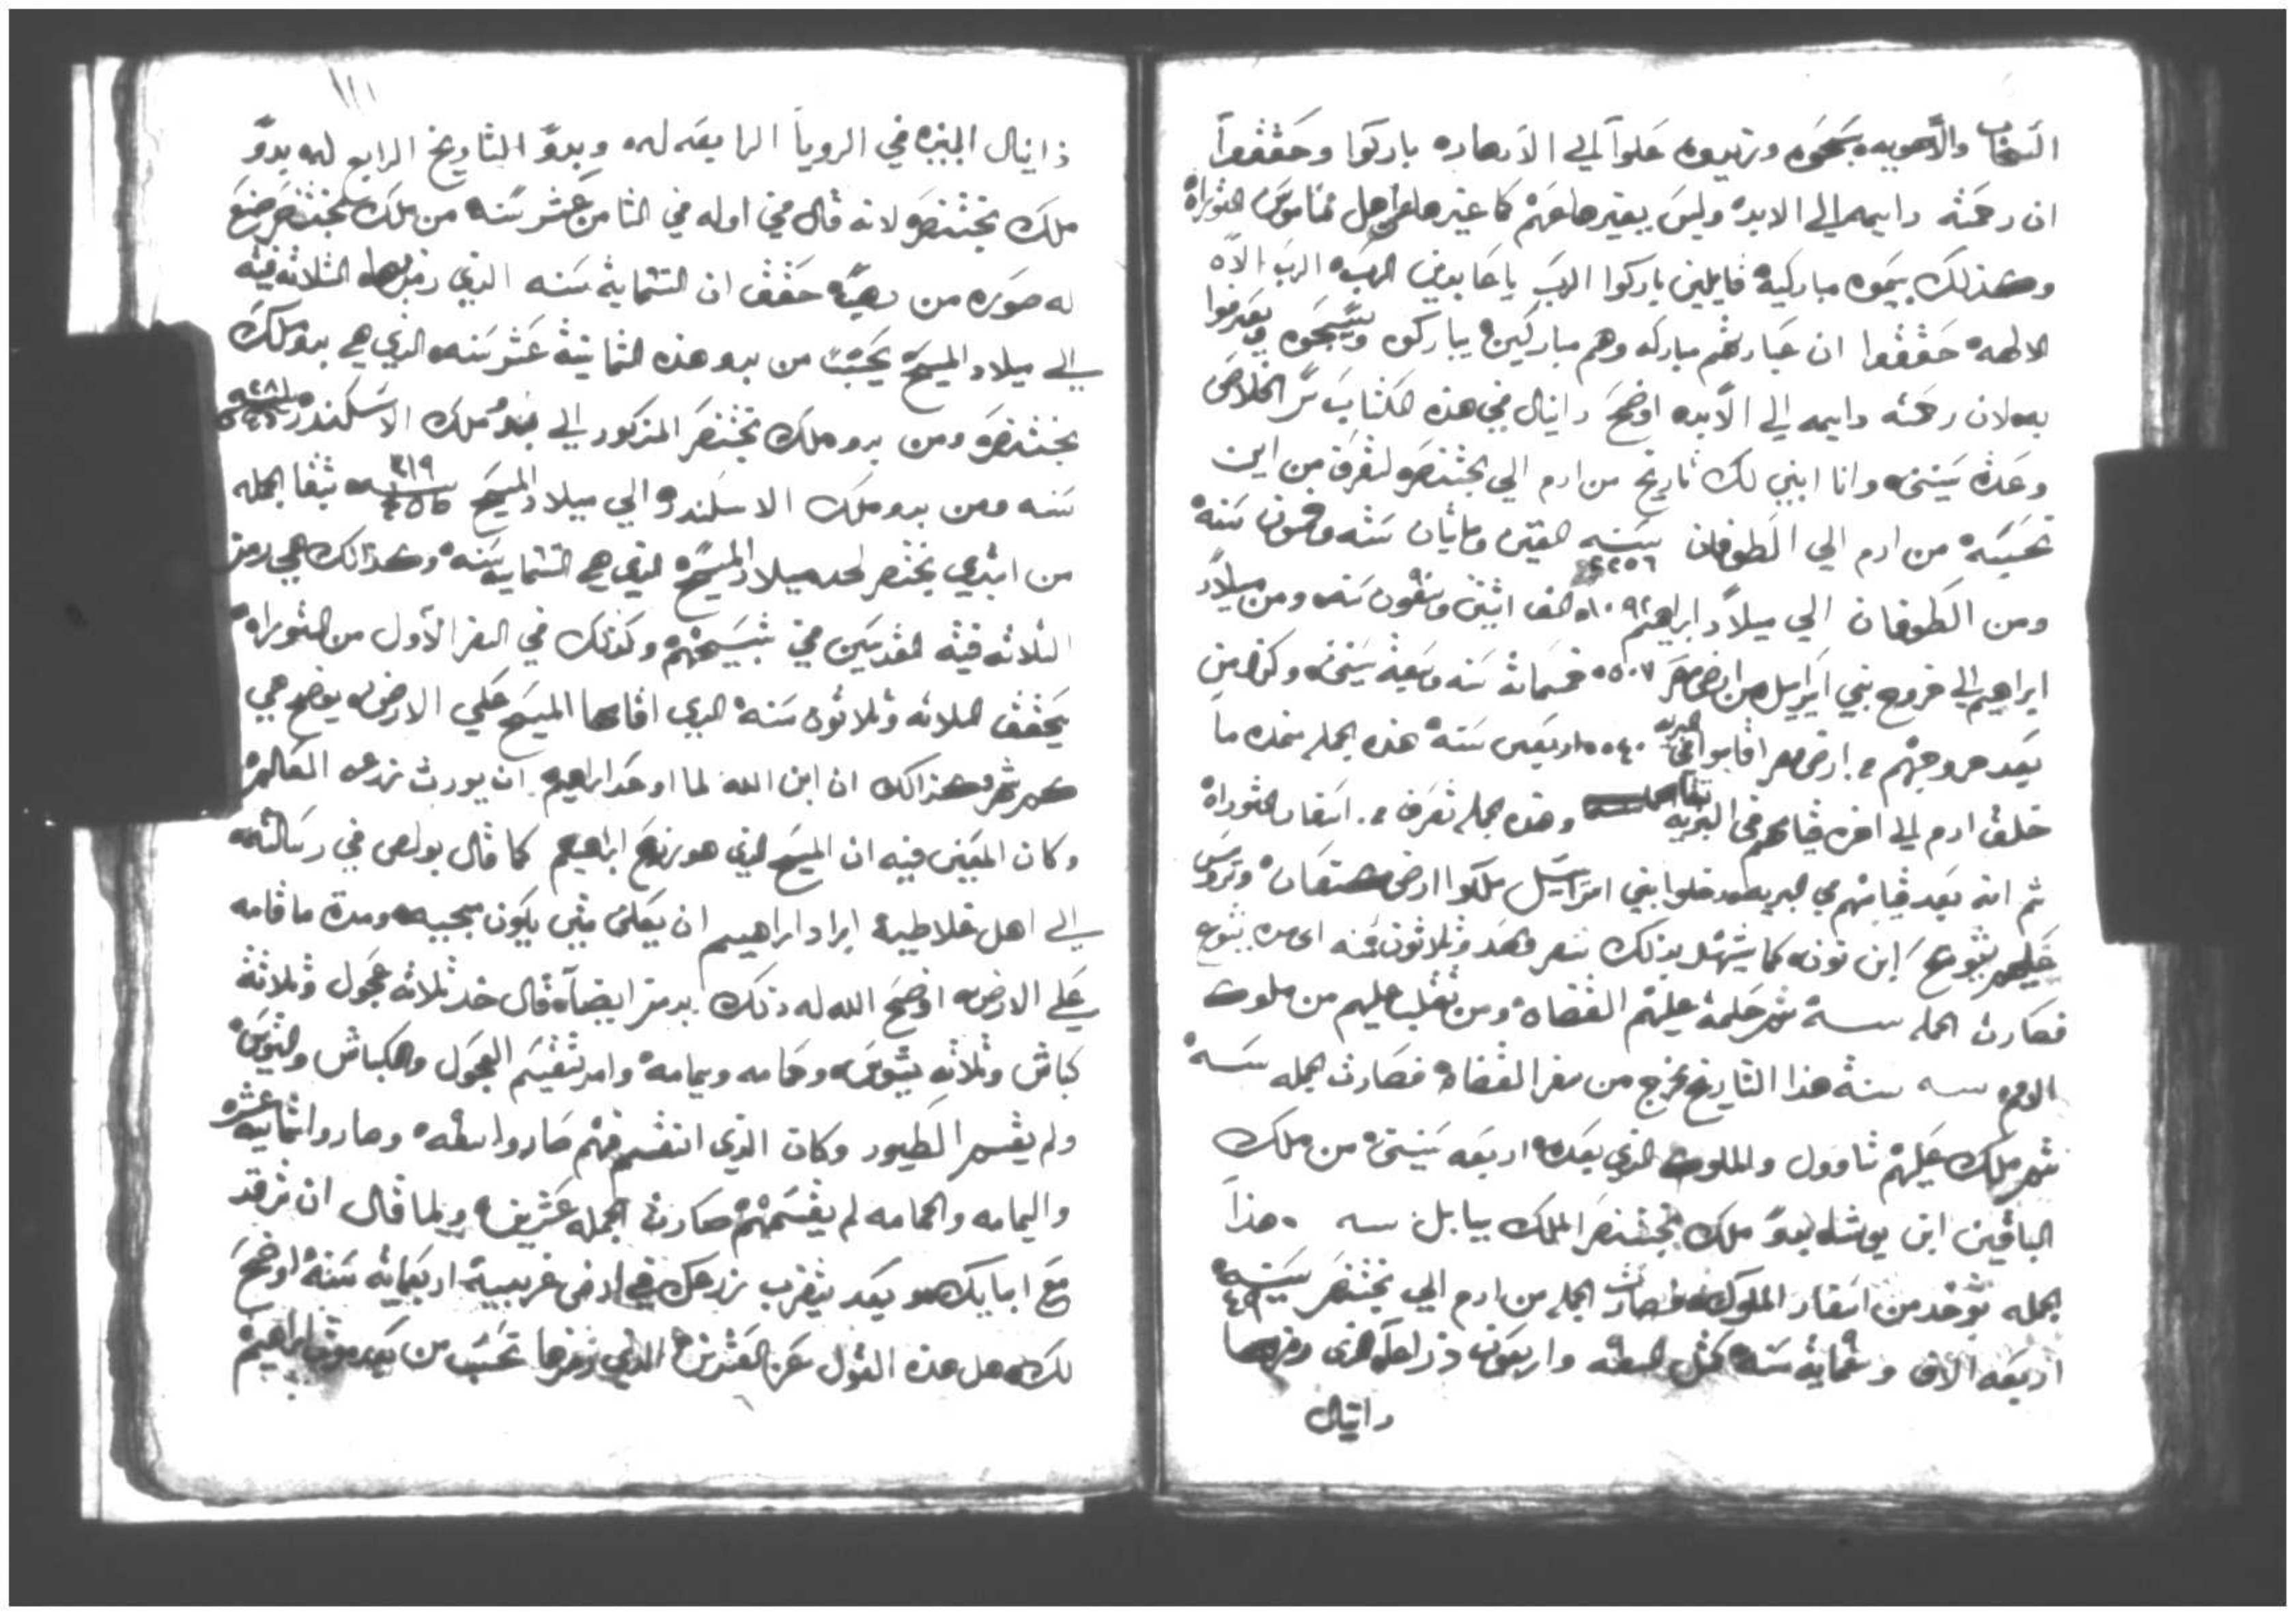 السحاب والاهويه سبحوه وزيدوه علوا الي الادهاره باركوا وحققوا
ان رحمته دايمه الي الابده وليس بغيرها عنهم كما غيرها عن اهل ناموس التوراة
وكذلك يتموه مباركية قايلين باركوا الرب يا عابدين الرب الرب الاه
الالهه حققوا ان عبادتهم مباركه وهم مباركين يباركوه ويسبحوه ويعترفوا
به لان رحمته دايمه الي الابده اوضح دانيال في هذه الكتاب سر الخلاص
وعدة سنينه وانا ابين لك تاريخ من ادم الي بختنصر لتعرف من اين
تحسبه من ادم الي الطوفان سنه ٢٢٥٦ الفين ومايتان سته وخمسون سنه
ومن الطوفان الي ميلاد ابراهيم ١٠٩٢ الف اثنين وتسعون سنه ومن ميلاد
ابراهيم الي خروج بني اسراييل من ارض مصر ٥٠٧ خمسماية سنه وسبعة سنين وكذا من
بعد خروجهم من ارض مصر اقاموا في البريه ٤٠ اربعين سنة هذه الجمله منذ ما
خلق ادم الي اخر قيامهم في البريه وهذه الجمله تعرف من اسفار التوراة
ثم انه بعد قيامهم في البريه دخلوا بني اسراييل ملكوا ارض كنعان وتروس
عليهم يشوع ابن نون كما يشهد بذلك سفره واحد وثلاثون سنه
فصارت الجمله سنة ثم حكمة عليهم القضاه ومن تغلب عليهم من ملوك
الامم سنه سنة هذا التاريخ يخرج من سفر القضاه فصارت الجمله سنة
ثم ملك عليهم شاوول والملوك الذي بعده اربعه سنين من ملك
الياقيم ابن يوشيا بدو ملك بختنصر الملك ببابل سنه هذا
الجمله توخد من اسفار الملوك فصارت الجمله من ادم الي بختنصر سنة ٤٩
اربعه الاف وتسعماية سنة كمثل الستة واربعون ذراعا الذي رمزها
دانيال
ذانيال النبي في الرويا الرابعه له وبدو التاريخ الرابع له بدو
ملك بختنصر لانه قال في اوله في الثامن عشر سنه من ملك بختنصر صنع
له صوره من دهب حقق ان الستماية سنه الذي رمزها الثلاثة فتيه
الي ميلاد المسيح يحسب من بدو هذه الثمانية عشر سنه الذي هي بدو ملك
بختنصر ومن بدو ملك بختنصر المذكور الي بدو ملك الاسكندر
سنه ومن بدو ملك الاسكندر الي ميلاد المسيح ٣١٩ تبقا الجمله
من ابتدي بختنصر لحد ميلاد المسيح الذي هي الستماية سنه وكذالك هي رمز
الثلاثه فتية القديسين في تسبيحتهم وكذلك في السفر الاول من التوراه
يحقق الثلاثه وثلاثون سنة الذي اقامها المسيح علي الارض يوضح هي
كم شهر وكذالك ان ابن الله لما اوعد ابراهيم ان يورث زرعه العالم
وكان المعني فيه ان المسيح الذي هو زرع ابراهيم كما قال بولص في رسالته
الي اهل غلاطية اراد ابراهيم ان يعلم متي يكون مجيه ومدة مقامه
علي الارض اوضح الله له ذلك برمز ايضا قال خد ثلاثة عجول وثلاثة
كباش وثلاثه تيوس وحمامه ويمامة وامر تقسيم العجول والكباش والتيوس
ولم يقسم الطيور وكان الذي انقسم منهم صاروا ستة وصاروا ثمانية عشره
واليمامه والحمامه لم يقسمهم صارت الجمله عشرين ولما قال ان ترقد
مع ابايك بعد يتغرب زرعك في ارض غريبية اربعماية سنة اوضح
لك هل هذه القول عن العشرين الذي رمزها تحسب من بعد موت ابراهيم